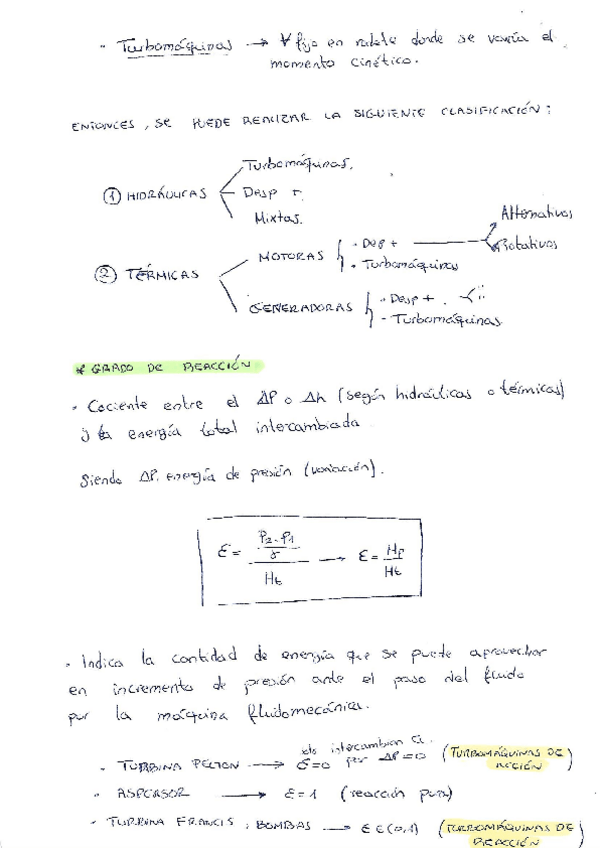 · Turbomáquinas → ∀ fijo en rodete donde se varía el
momento cinético.
ENTONCES, SE PUEDE REALIZAR LA SIGUIENTE CLASIFICACIÓN:
① HIDRÁULICAS
Turbomáquinas.
Desp +.
Mixtas.
② TÉRMICAS
MOTORAS
· Desp +
Alternativos
Rotativos
· Turbomáquinas
GENERADORAS
· Desp +.
- Turbomáquinas.
* GRADO DE REACCIÓN
· Cociente entre el ΔP o Δh (según hidráulicas o térmicas)
y la energía total intercambiada
Siendo ΔP: energía de presión (variación).
Ɛ = ((P2 - P1) / γ) / Ht → Ɛ = Hp / Ht
· Indica la cantidad de energía que se puede aprovechar
en incremento de presión ante el paso del fluido
por la máquina fluidomecánica.
· TURBINA PELTON → Ɛ=0 intercambian por ΔP=0 (TURBOMÁQUINAS DE
ACCIÓN)
· ASPERSOR → Ɛ=1 (reacción pura)
· TURBINA FRANCIS; BOMBAS → Ɛ ∈ (0,1) (TURBOMÁQUINAS DE
REACCIÓN)